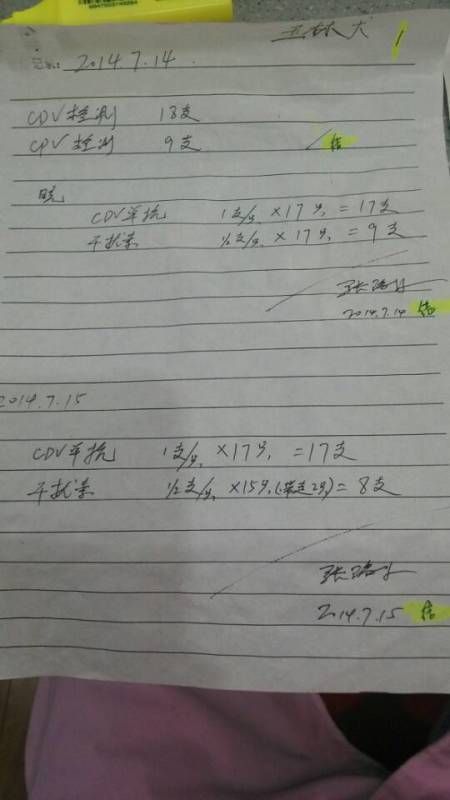 1
2014.7.14
CDV检测 18支
CPV检测 9支 结
晚
CDV单抗 1支/只 ×17只 = 17支
干扰素 1/2支/只 ×17只 = 9支
2014.7.14 结
2014.7.15
CDV单抗 1支/只 ×17只 =17支
干扰素 1/2支/只 ×15只(带走2只)= 8支
2014.7.15 结